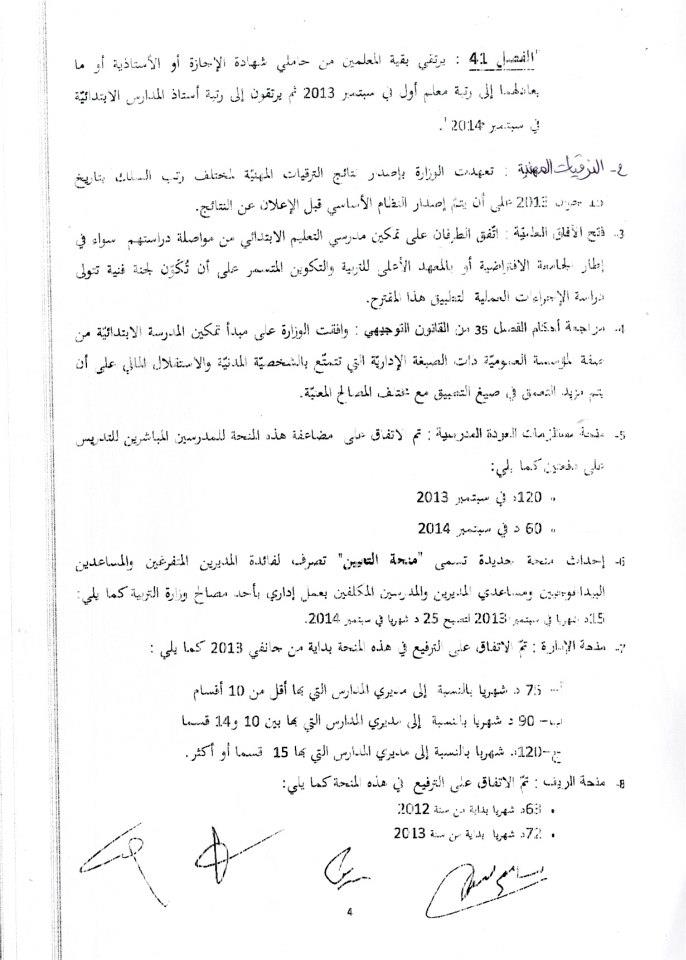 "الفصل 41 : يرتقي بقية المعلمين من حاملي شهادة الإجازة أو الأستاذية أو ما
يعادلهما إلى رتبة معلم أول في سبتمبر 2013 ثم يرتقون إلى رتبة أستاذ المدارس الابتدائيّة
في سبتمبر 2014".
2- الترقيات المهنية : تعهدت الوزارة بإصدار نتائج الترقيات المهنيّة لمختلف رتب السلك بتاريخ
2013 على أن يتمّ إصدار النظام الأساسي قبل الإعلان عن النتائج.
3- فتح الآفاق العلميّة : اتّفق الطرفان على تمكين مدرسي التعليم الابتدائي من مواصلة دراستهم سواء في
إطار الجامعة الافتراضية أو بالمعهد الأعلى للتربية والتكوين المستمر على أن تُكَوَّن لجنة فنية تتولى
دراسة الإجراءات العملية لتطبيق هذا المقترح.
4- مراجعة أحكام الفصل 35 من القانون التوجيهي : وافقت الوزارة على مبدأ تمكين المدرسة الابتدائيّة من
صفة المؤسسة العموميّة ذات الصبغة الإداريّة التي تتمتّع بالشخصيّة المدنيّة والاستقلال المالي على أن
يتم مزيد التعمق في صيغ التطبيق مع مختلف المصالح المعنيّة.
5- منحة مستلزمات العودة المدرسية : تم الاتفاق على مضاعفة هذه المنحة للمدرسين المباشرين للتدريس
على دفعتين كما يلي:
• 120د في سبتمبر 2013
• 60 د في سبتمبر 2014
6- إحداث منحة جديدة تسمى "منحة التعيين" تصرف لفائدة المديرين المتفرغين والمساعدين
البيداغوجيين ومساعدي المديرين والمدرسين المكلفين بعمل إداري بأحد مصالح وزارة التربية كما يلي:
15د شهريا في سبتمبر 2013 لتصبح 25 د شهريا في سبتمبر 2014.
7- منحة الإدارة : تمّ الاتفاق على الترفيع في هذه المنحة بداية من جانفي 2013 كما يلي :
أ- 75 د شهريا بالنسبة إلى مديري المدارس التي بها أقل من 10 أقسام
ب- 90 د شهريا بالنسبة إلى مديري المدارس التي بها بين 10 و14 قسما
ج-120د شهريا بالنسبة إلى مديري المدارس التي بها 15 قسما أو أكثر.
8- منحة الريف : تمّ الاتفاق على الترفيع في هذه المنحة كما يلي:
• 63د شهريا بداية من سنة 2012
• 72د شهريا بداية من سنة 2013
4